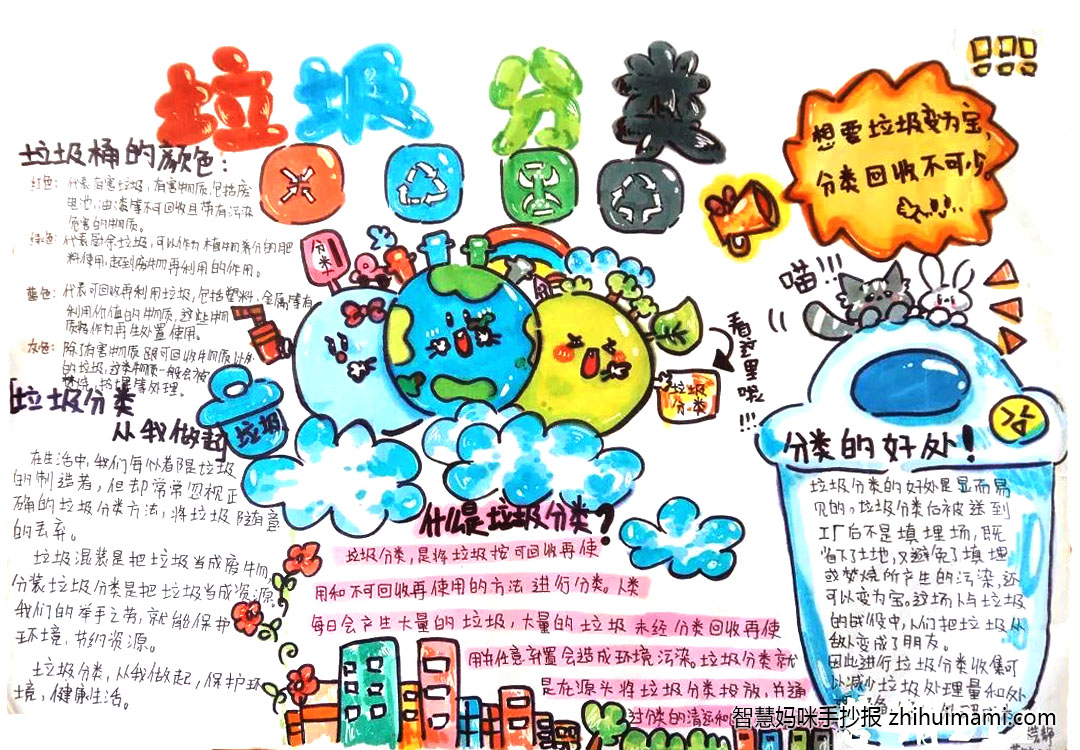 垃圾分类
垃圾桶的颜色：
红色：代表有害垃圾，有害物质，包括废
电池，油漆等不可回收且带有污染
危害的物质。
绿色：代表厨余垃圾，可以作为植物养分的肥
料使用，起到废物再利用的作用。
蓝色：代表可回收再利用垃圾，包括塑料、金属等有
利用价值的物质，这些物
质将作为再生处置使用。
灰色：除了有害物质跟可回收物质以外
的垃圾，这类物质一般会被
焚烧、掩埋等处理。
「垃圾分类
从我做起」
垃圾
在生活中，我们每个人都是垃圾
的制造者，但却常常忽视正
确的垃圾分类方法，将垃圾随意
的丢弃。
垃圾混装是把垃圾当成废物，
分装垃圾分类是把垃圾当成资源
我们的举手之劳，就能保护
环境，节约资源。
垃圾分类，从我做起，保护环
境，健康生活。
分类
什么是垃圾分类？
垃圾分类，是将垃圾按可回收再使
用和不可回收再使用的方法进行分类。人类
每日会产生大量的垃圾，大量的垃圾未经分类回收再使
用并任意弃置会造成环境污染。垃圾分类就
是在源头将垃圾分类投放，并通
过分类的清运和
想要垃圾变为宝，
分类回收不可少。
喵!!!
看这里哦!!!
垃圾
分类
分类的好处！
垃圾分类的好处是显而易
见的。垃圾分类后被送到
工厂后不是填埋场，既
省下了土地，又避免了填埋
或焚烧所产生的污染，还
可以变为宝。这场人与垃圾
的战役中，人们把垃圾从
敌人变成了朋友。
因此进行垃圾分类收集可
以减少垃圾处理量和处
智慧妈咪手抄报 zhihuimami.com